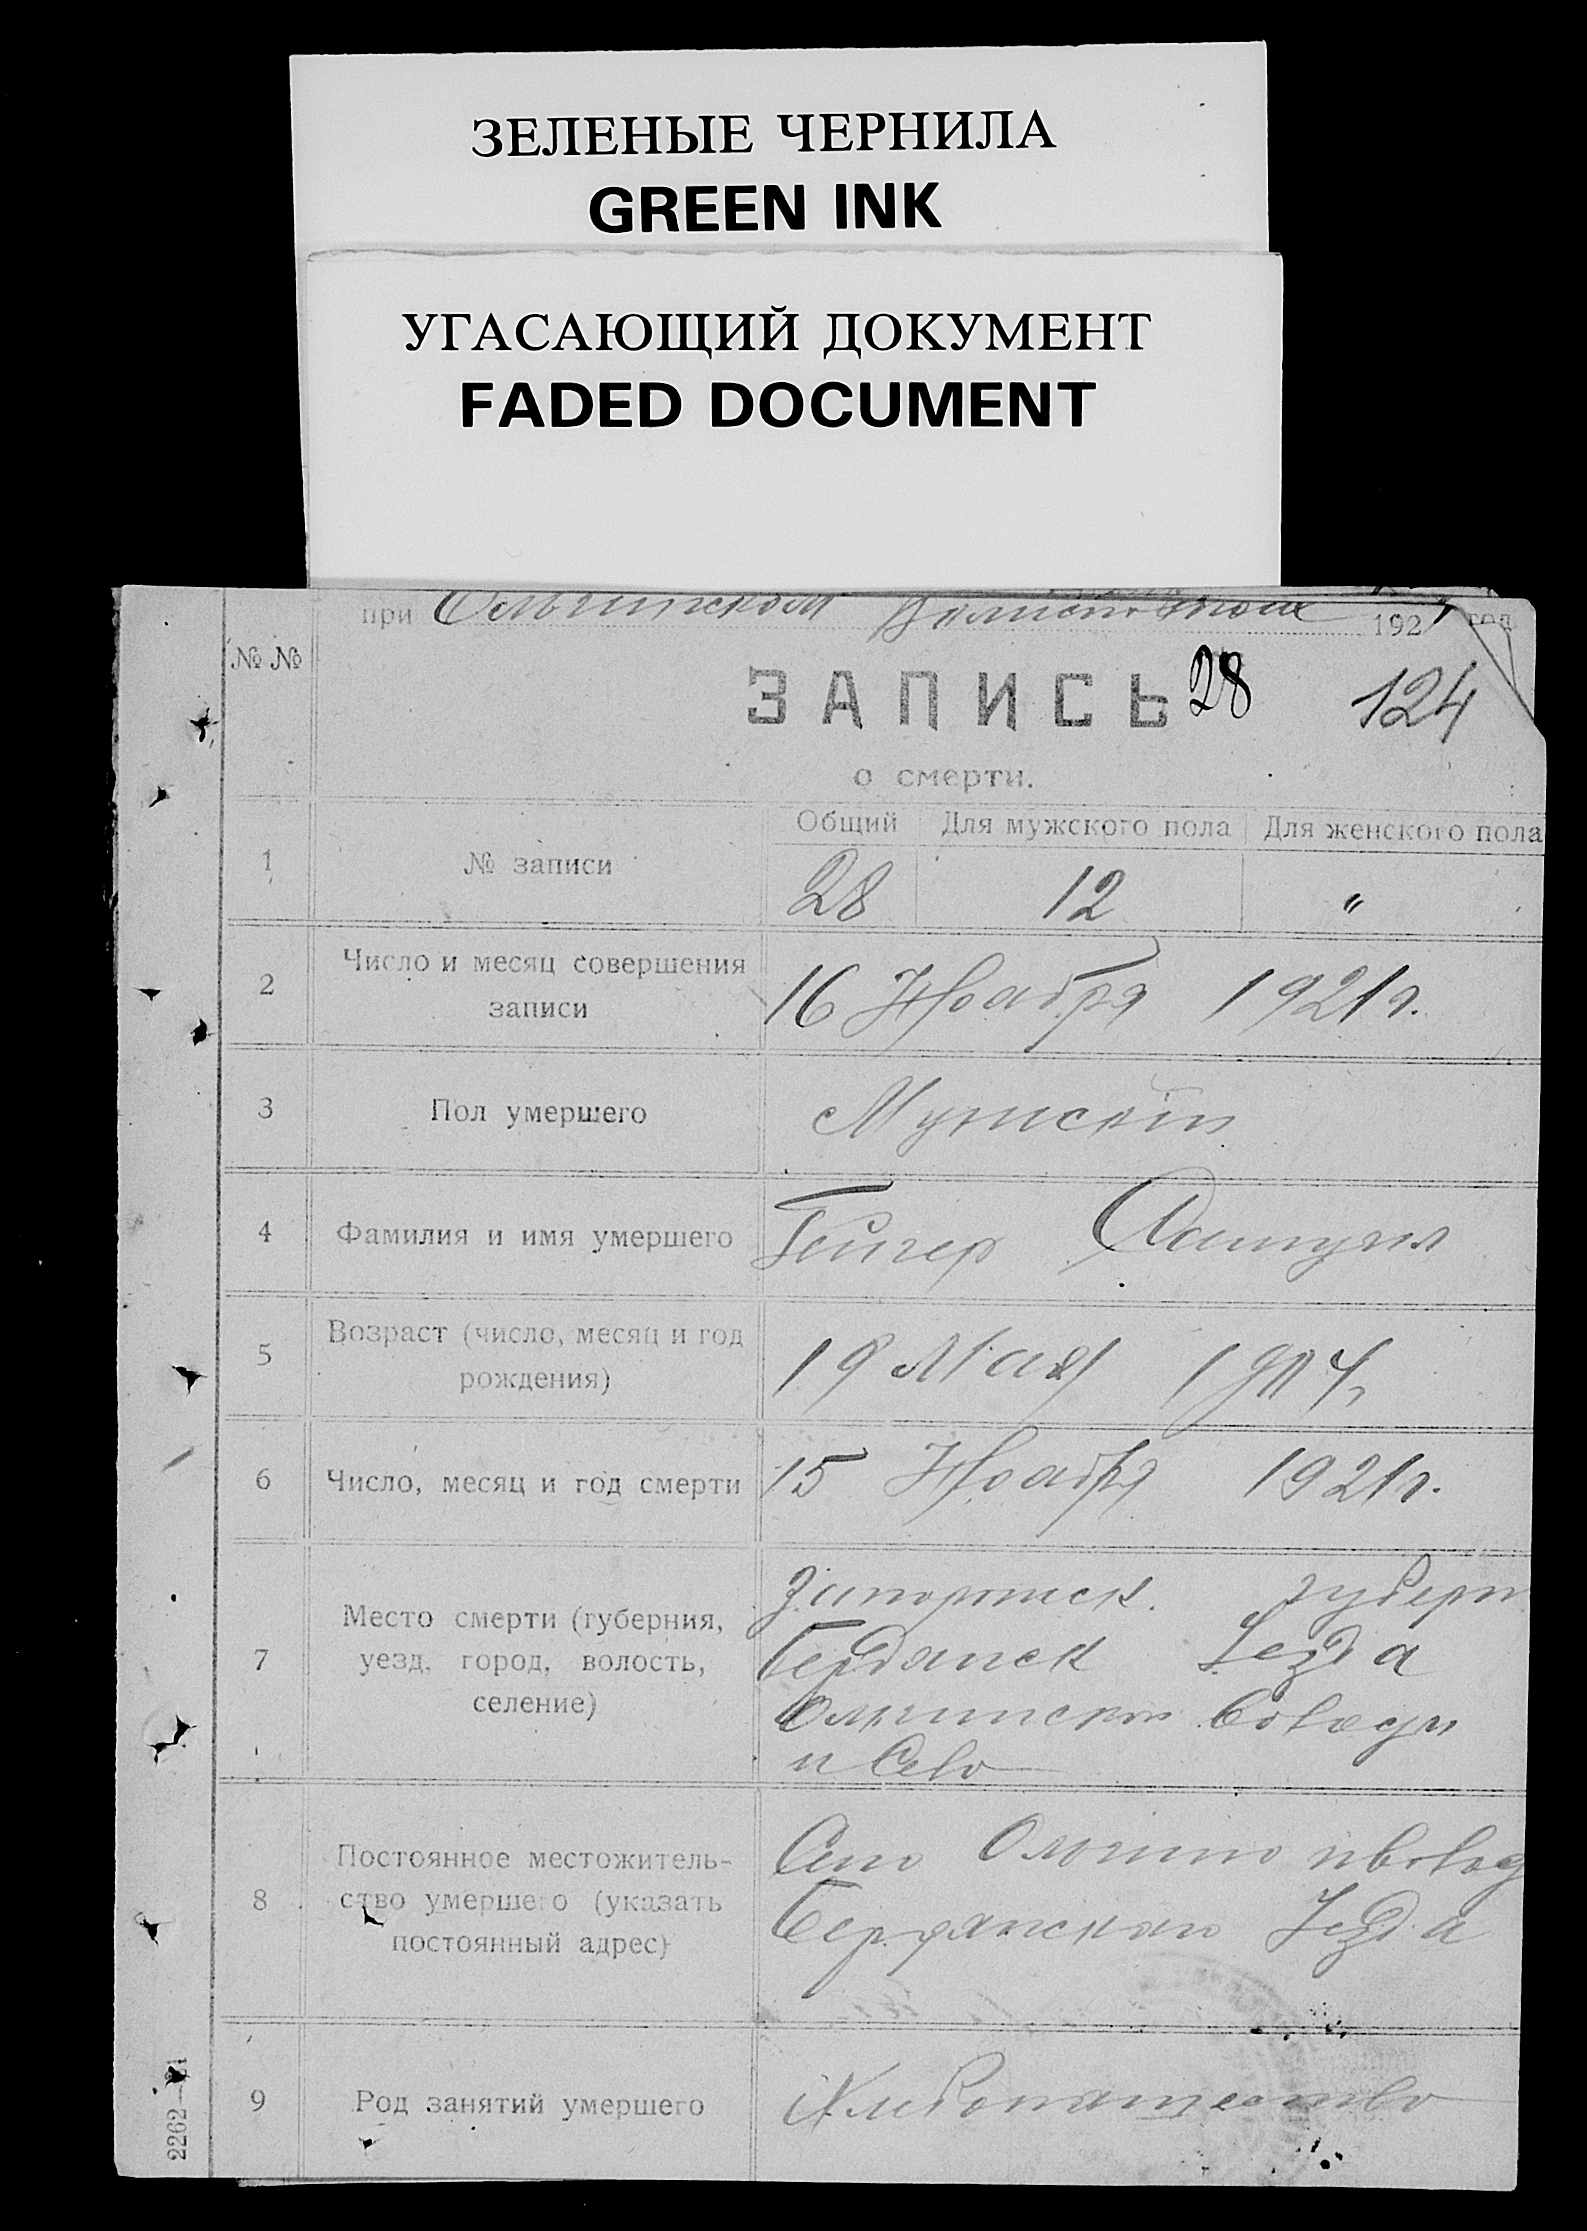 ЗЕЛЕНЫЕ ЧЕРНИЛА
GREEN INK
УГАСАЮЩИЙ ДОКУМЕНТ
FADED DOCUMENT
при Ольгинском 192 год
№ №
ЗАПИСЬ 28 124
о смерти.
Общий Для мужского пола Для женского пола
1 № записи 28 12 "
2 Число и месяц совершения
записи 16 Ноября 1921 г.
3 Пол умершего Мужской
4 Фамилия и имя умершего Гейгер Самуил
5 Возраст (число, месяц и год
рождения) 19 Мая
6 Число, месяц и год смерти 15 Ноября 1921 г.
7 Место смерти (губерния,
уезд, город, волость,
селение)
Запорожск. губерн
Бердянск Уезда
Ольгинской
и Село
8 Постоянное местожитель-
ство умершего (указать
постоянный адрес)
Село Ольгино
Бердянского Уезда
9 Род занятий умершего Хлебопашество
2262—21